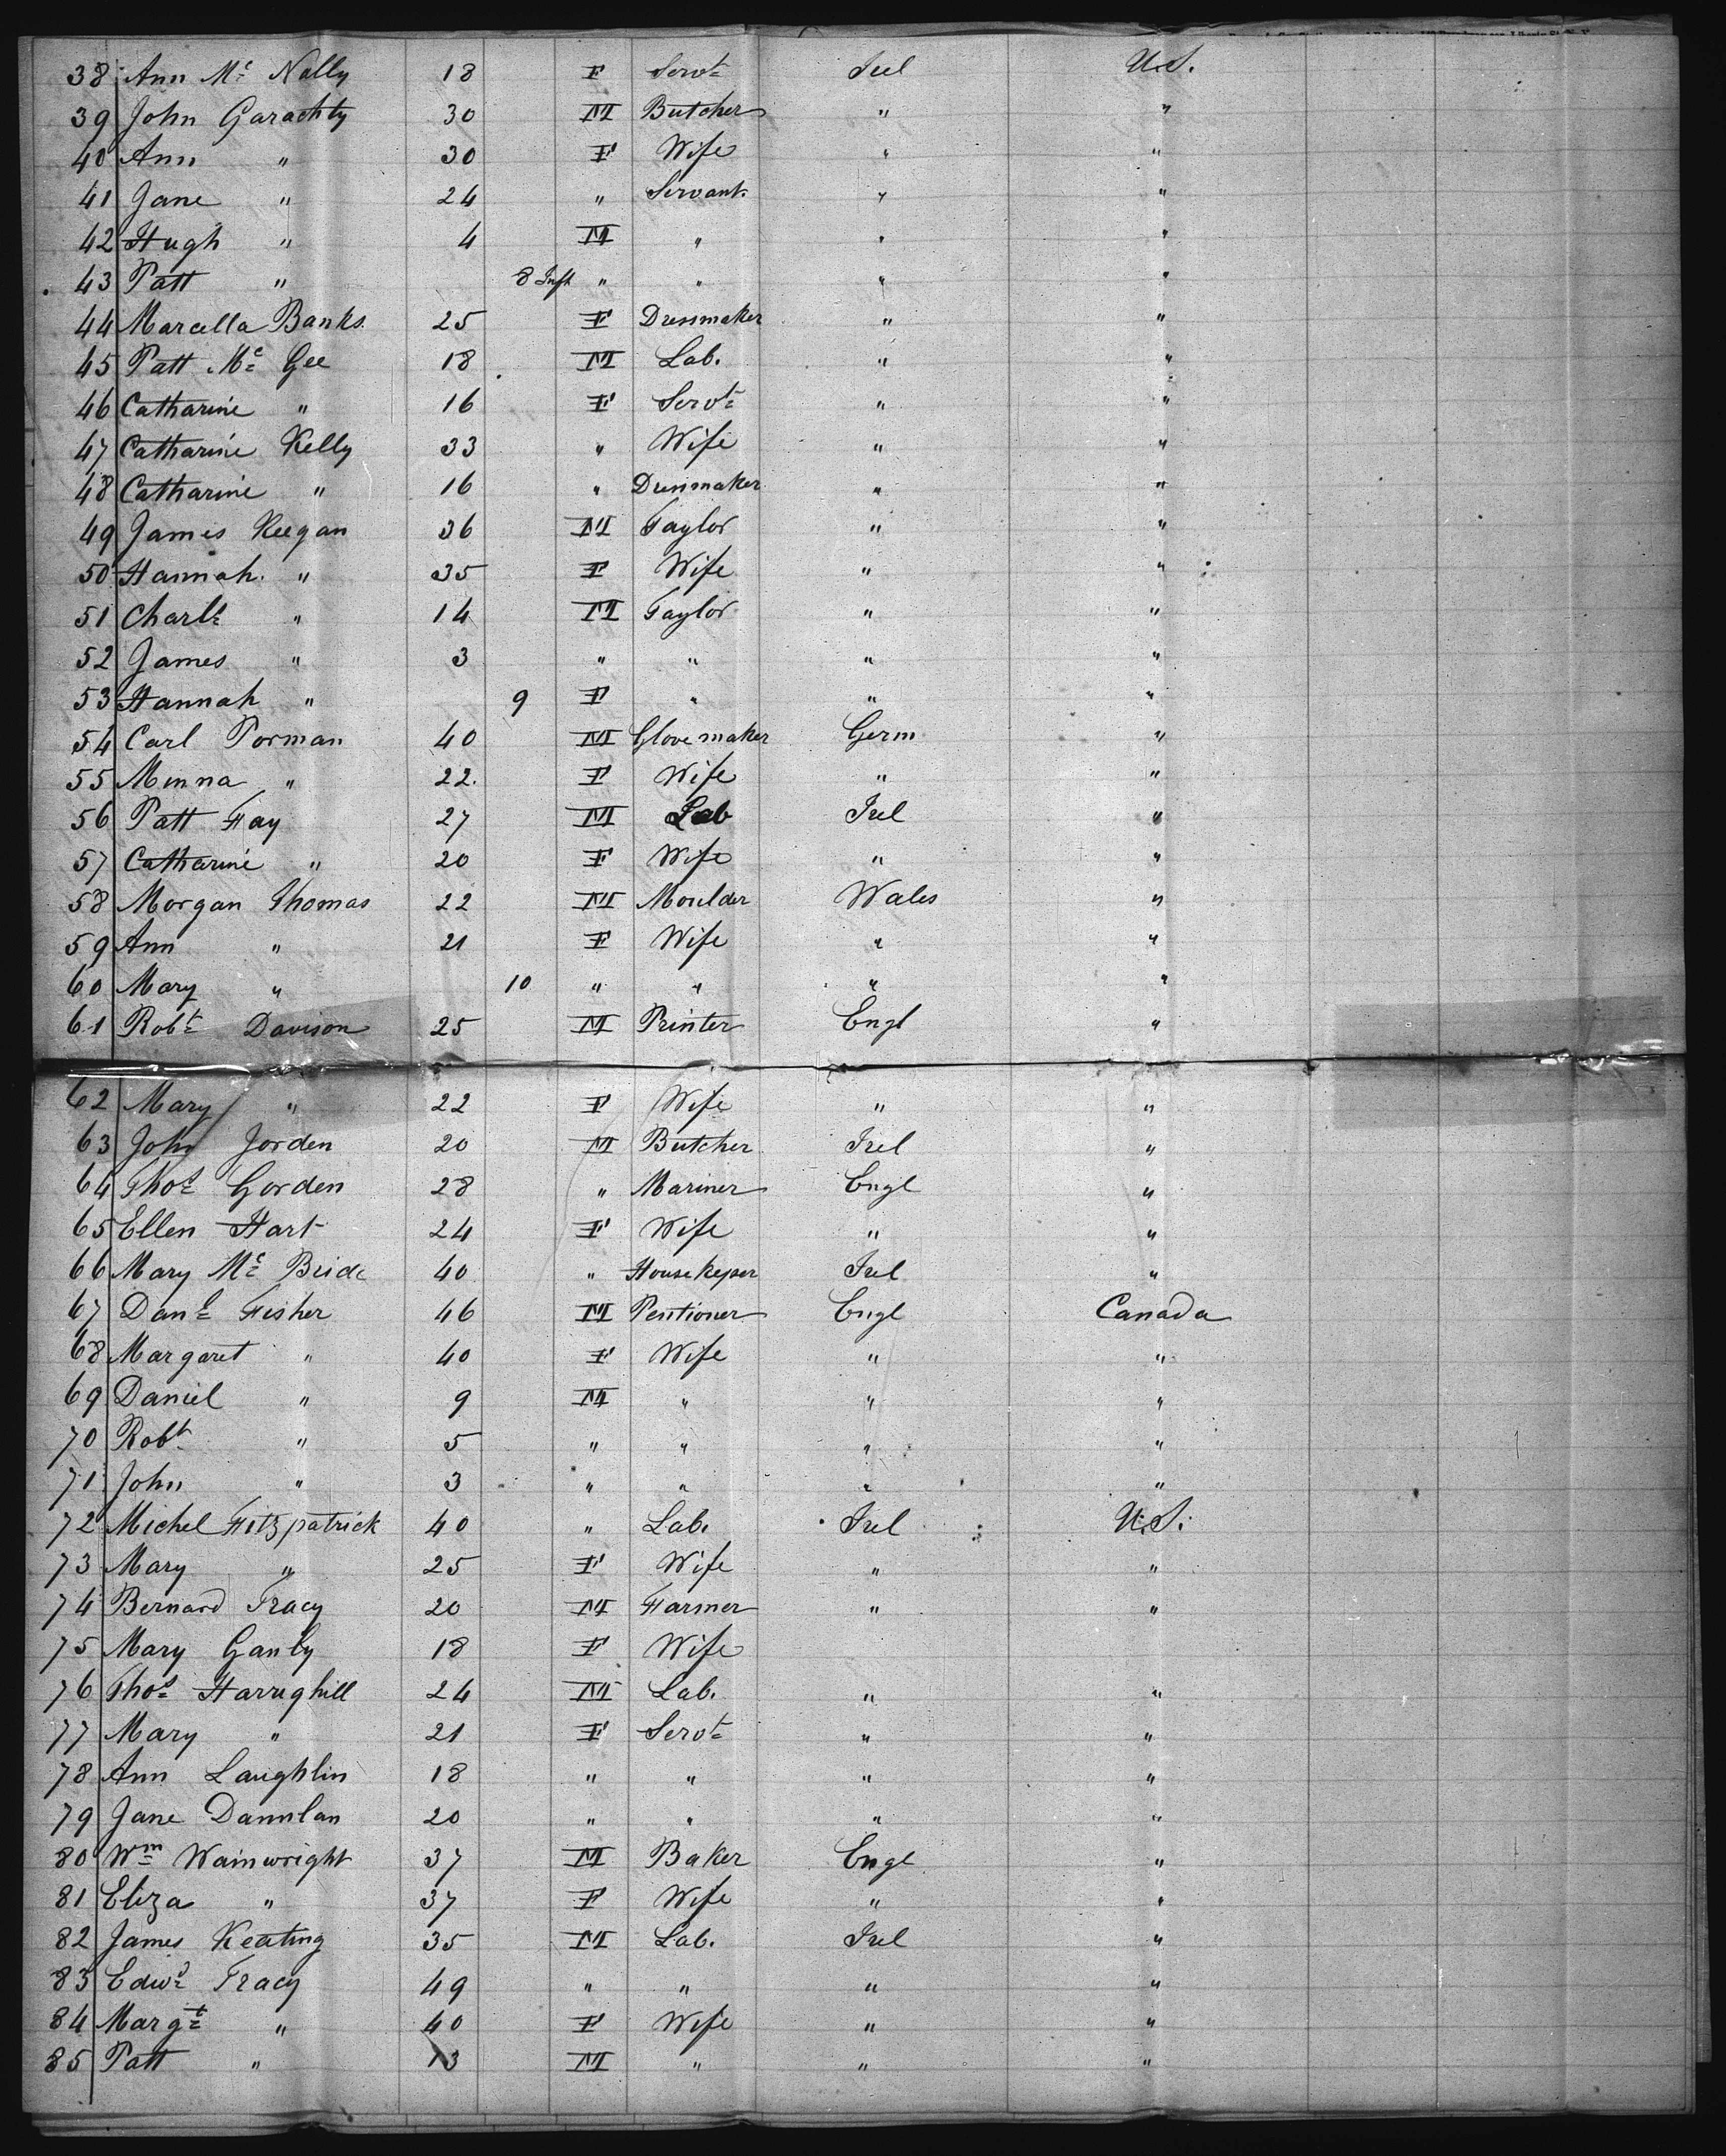 38 Ann Mc Nally 18 F Servt Irel U.S.
39 John Garachty 30 M Butcher " "
40 Ann " 30 F Wife " "
41 Jane " 24 " Servant " "
42 Hugh " 4 M " " "
43 Patt " 8 Inft " " " "
44 Marcella Banks 25 F Dressmaker " "
45 Patt Mc Gee 18 M Lab. " "
46 Catharine " 16 F Servt " "
47 Catharine Kelly 33 " Wife " "
48 Catharine " 16 " Dressmaker " "
49 James Keegan 36 M Taylor " "
50 Hannah " 35 F Wife " "
51 Charls " 14 M Taylor " "
52 James " 3 " " " "
53 Hannah " 9 F " " "
54 Carl Porman 40 M Glovemaker Germ "
55 Minna " 22. F Wife " "
56 Patt Fay 27 M Lab Irel "
57 Catharine " 20 F Wife " "
58 Morgan Thomas 22 M Moulder Wales "
59 Ann " 21 F Wife " "
60 Mary " 10 " " " "
61 Robt Davison 25 M Printer Engl "
62 Mary " 22 F Wife " "
63 John Jorden 20 M Butcher Irel "
64 Thos Gorden 28 " Mariner Engl "
65 Ellen Hart 24 F Wife " "
66 Mary Mc Bride 40 " Housekeper Irel "
67 Danl Fisher 46 M Pentioner Engl Canada
68 Margaret " 40 F Wife " "
69 Daniel " 9 M " " "
70 Robt " 5 " " " "
71 John " 3 " " " "
72 Michel Fitzpatrick 40 " Lab. Irel U.S.
73 Mary " 25 F Wife " "
74 Bernard Tracy 20 M Farmer " "
75 Mary Ganly 18 F Wife
76 Thos Harrughill 24 M Lab. " "
77 Mary " 21 F Servt " "
78 Ann Laughlin 18 " " " "
79 Jane Dannlan 20 " " " "
80 Wm Wainwright 37 M Baker Engl "
81 Eliza " 37 F Wife " "
82 James Keating 35 M Lab. Irel "
83 Edwd Tracy 49 " " " "
84 Margt " 40 F Wife " "
85 Patt " 13 M " " "